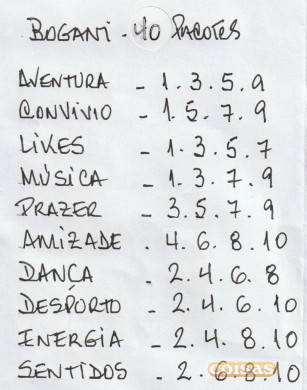 BOGANI - 40 PACOTES
AVENTURA - 1. 3. 5. 9
CONVIVIO - 1. 5. 7. 9
LIKES - 1. 3. 5. 7
MÚSICA - 1. 3. 7. 9
PRAZER - 3. 5. 7. 9
AMIZADE - 4. 6. 8. 10
DANÇA - 2. 4. 6. 8
DESPORTO - 2. 4. 6. 10
ENERGIA - 2. 4. 8. 10
SENTIDOS - 2. 6. 8. 10
coisas